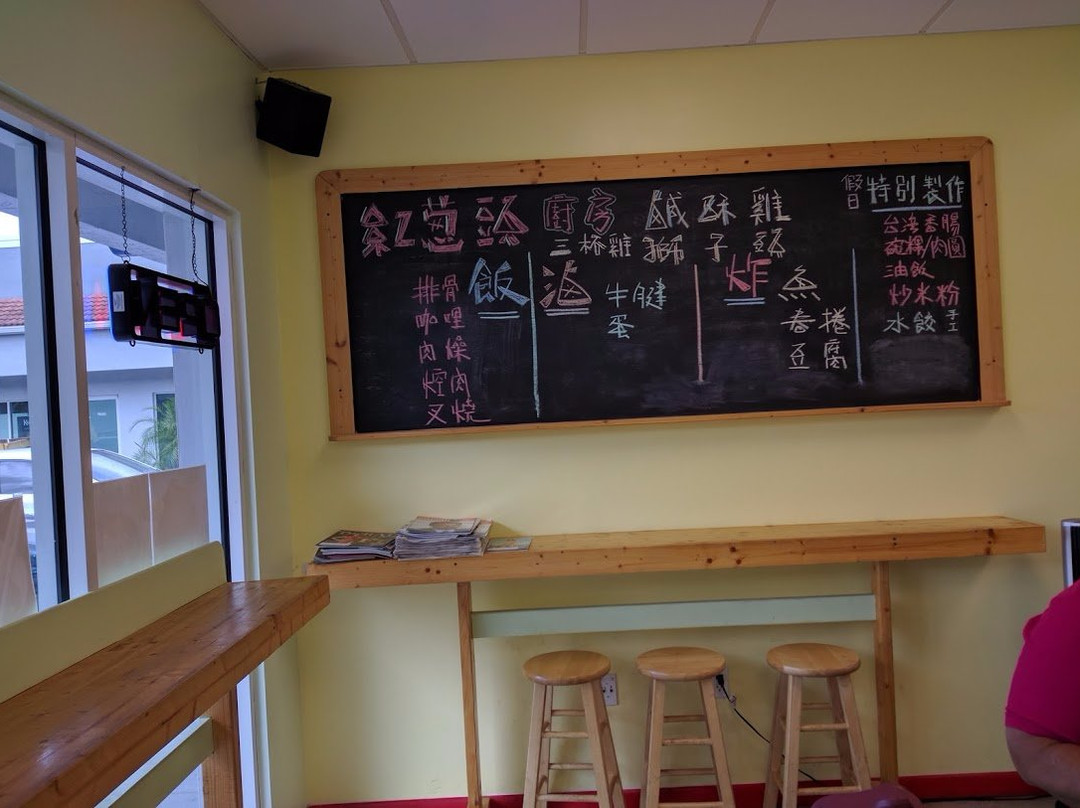 紅蔥頭 廚房 鹹酥雞
三杯雞 獅子頭
飯
排骨
咖哩
肉燥
焢肉
叉燒
滷
牛腱
蛋
炸
魚
春捲
豆腐
假日 特別製作
台湾香腸
碗粿/肉圓
油飯
炒米粉
水餃 手工